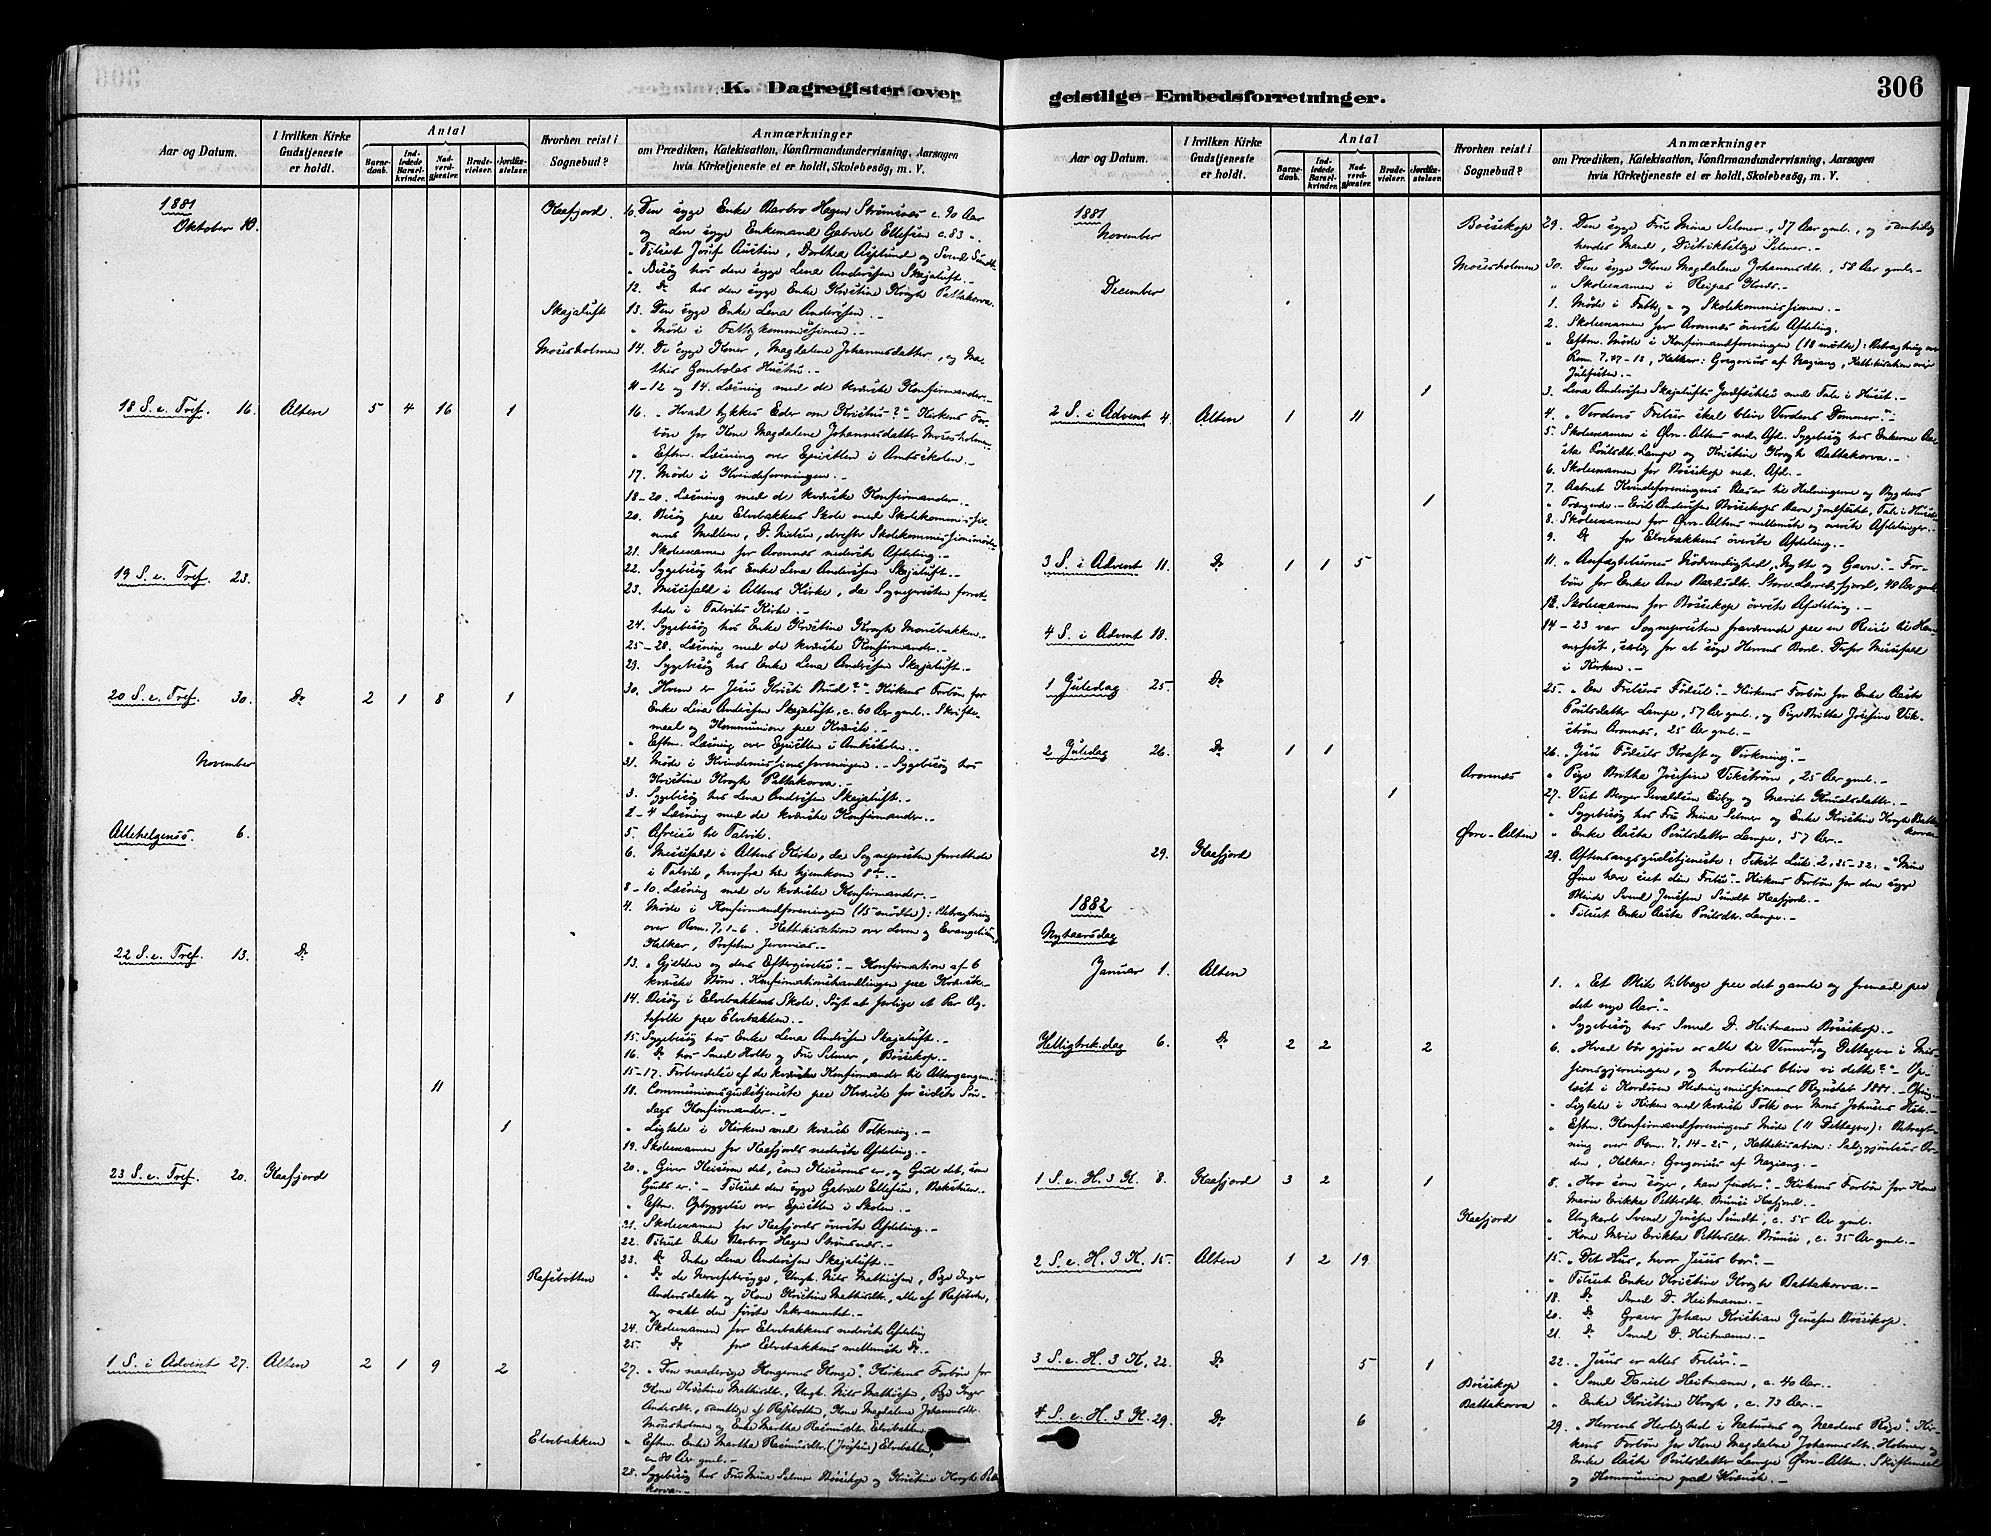 306
K. Dagregister over
geistlige Embedsforretninger.
Aar og Datum.
I hvilken Kirke Gudstjeneste er holdt.
Antal
Barnedaab.
Indledede Barselkvinder.
Nadverdgjester.
Brudevielser.
Jordfæstelser.
Hvorhen reist i Sognebud?
Anmærkninger
om Prædiken, Katekisation, Konfirmandundervisning, Aarsagen
hvis Kirketjeneste ei er holdt, Skolebesøg, m. V.
1881
Oktober 10.
Kaafjord. 10. Den syge Enke Barbro Hagen Strømsnæs c. 90 Aar
og den syge Enkemand Gabriel Ellefsen c. 83 -
" Tilseet Josef Austin, Dorthea Asplund og Svend Sundt
" Besøg hos den syge Lena Andersen Skajaluft.-
12. Do hos den syge Enke Kristine Krogh Battakorva.
Skajaluft 13. Den syge Enke Lena Andersen.-
" Møde i Fattigkommissionen.-
Mouesholmen 14. De syge Koner, Magdalene Johannesdatter, og Ma-
this Gambolas Hustru.-
11-12 og 14. Læsning med de kvænske Konfirmander.-
18 S. e. Tref. 16. Alten 5 4 16 1 16. "Hvad tykkes Eder om Kristus?" Kirkens For-
bøn for Kone Magdalene Johannesdatter Mouesholmen.
" Eftm. Læsning over Epistlen i Amtsskolen.-
17. Møde i Kvindeforeningen.-
18-20. Læsning med de kvænske Konfirmander.-
20. Besøg paa Elvebakkens Skole med Skolekommissio-
nens Medlem, D. Nielsen, derefter Skolekommissionsmøde
21. Skoleexamen for Aronnæs nederste Afdeling.-
22. Sygebesøg hos Enke Lena Andersen Skajaluft.-
19 S. e. Tref. 23. 23. Messefald i Altens Kirke, da Sognepresten forret-
tede i Talviks Kirke.-
24. Sygebesøg hos Enke Kristine Krogh
25-28. Læsning med de kvænske Konfirmander.-
29. Sygebesøg hos Enke Lena Andersen Skajaluft.-
20 S. e. Tref. 30. Do 2 1 8 1 30. Hvem er Jesu Kristi Brud?" Kirkens Forbøn for
Enke Lena Andersen Skajaluft, c. 60 Aar gml. Skrifte-
maal og Kommunion paa Kvænsk.-
" Eftm. Læsning over Epistlen i Amtsskolen.-
November 31. Møde i Kvindemissionsforeningen. Sygebesøg hos
Kristine Krogh Battakorva.-
3. Sygebesøg hos Lena Andersen Skajaluft.-
2-4 Læsning med de kvænske Konfirmander.-
5. Afreise til Talvik.-
Allehelgenss. 6. 6. Messefald i Altens Kirke, da Sognepresten forrettede
i Talvik, hvorfra han hjemkom 8de.-
8-10. Læsning med de kvænske Konfirmander.-
4. Møde i Konfirmandforeningen (15 mødte): Betragtning
over Rom. 7, 1-6. Kattekisation over Loven og Evangelium,
Helker, Profeten Jeremias.-
22 S. e. Tref. 13. Do 13. "Gjelden og dens Eftergivelse". Konfirmation af 6
kvænske Børn. Konfirmationshandlingen paa Kvænsk.-
14. Besøg i Elvebakkens Skole. Søgt at forlige et Par Æg-
tefolk paa Elvebakken.-
15. Sygebesøg hos Enke Lena Andersen Skajaluft.-
16. Do hos Smed Holte og Fru Selmer, Bossekop.-
15-17. Forberedelse af de kvænske Konfirmander til Altergangen.-
11 18. Communionsgudstjeneste paa Kvænsk for sidste Søn-
dags Konfirmander.-
1 " Ligtale i Kirken med kvænsk Tolkning.-
19. Skoleexamen for Kaafjords nederste Afdeling.-
23 S. e. Tref. 20. Kaafjord 20. "Giver Keiseren det, som Keiserens er, og Gud det, som
Guds er." Tilseet den syge Gabriel Ellefsen,
" Eftm. Opbyggelse over Epistlen i Skolen.-
21. Skoleexamen for Kaafjords øverste Afdeling.-
22. Tilseet Enke Barbro Hagen Strømsnæs.-
23. Do Enke Lena Andersen Skajaluft.-
Rafsbotten " Do de syge, Ungk. Nils Mathisen, Pige Inger
Andersdatter og Kone Kristine Mathisdtr., alle af Rafsbotn,
og rakt den første Sakramentet.-
24. Skoleexamen for Elvebakkens nederste Afdeling
25. Do for Elvebakkens mellemste Do.-
1 S. i Advent 27. Alten 2 1 9 2 27. "Den naaderige Kongernes Konge". Kirkens Forbøn for
Kone Kristine Mathisdt., Ungk. Nils Mathisen, Pige Inger
Andersdt., samtlige af Rafsbotten, Kone Magdalene Johannesdt.
Mouesholmen og Enke Martha Rasmusdtr. Elvebakken.
Elvebakken " Eftm. Enke Martha Rasmusdtr. (Josefsen) Elvebakken,
c. 80 Aar gml.-
28. Sygebesøg hos Fru Mina Selmer Bossekop og Kristine Krogh Batta-
korva.-
Aar og Datum.
I hvilken Kirke Gudstjeneste er holdt.
Antal
Barnedaab.
Indledede Barselkvinder.
Nadverdgjester.
Brudevielser.
Jordfæstelser.
Hvorhen reist i Sognebud?
Anmærkninger
om Prædiken, Katekisation, Konfirmandundervisning, Aarsagen
hvis Kirketjeneste ei er holdt, Skolebesøg, m. V.
1881
November
Bossekop 29. Den syge Fru Mina Selmer, 37 Aar gml., og samtidig
hendes Mand, Distriktslæge Selmer.-
Mouesholmen 30. Den syge Kone Magdalene Johannesdt., 58 Aar gml.-
" Skoleexamen i Reipas Kreds.-
December 1. Møde i Fattig- og Skolekommissionen.-
2. Skoleexamen for Aronnæs øverste Afdeling.
" Eftm. Møde i Konfirmandforeningen (18 mødte): Betragtning over
Rom. 7. 07-13, Helker: Gregorius af Nazianz, Kattekisation over
Julefesten.-
1 3. Lena Andersen Skajalufts Jordfæstelse med Tale i Huset.-
2 S. i Advent 4. Alten 1 11 4. "Verdens Frelser skal blive Verdens Dommer".-
5. Skoleexamen i Øvre-Altens ned. Afd. Sygebesøg hos Enkerne Aas-
ta Poulsdt. Lampe og Kristine Krogh Battakorva.-
6. Skoleexamen for Bossekop ned. Afd.-
7. Aabnet Kvindeforeningens Basar til Hedningerne og Bygdens
1 " Trængende.- Emil Andersen Bossekops Barn jordfæstet, Tale i Huset.
8. Skoleexamen for Øvre-Altens mellemste og øverste Afdelinger.-
9. Do for Elvebakkens øverste Afdeling.-
3 S. i Advent 11. Do 1 1 5 11. "Anfægtelsernes Nødvendighed, Nytte og Gavn". For-
bøn for Enke Ane Bardsdt. Store Lerresfjord, 48 Aar gml.
12. Skoleexamen for Bossekop øverste Afdeling.-
4 S. i Advent 18. 14-23 var Sognepresten fraværende paa en Reise til Ham-
merfest, særlig for at søge Herrens Bord. Derfor Messefald
i Kirken.-
1 Juledag 25. Do 25. "En Frelsers Fødsel". Kirkens Forbøn for Enke Aasta
Poulsdatter Lampe, 57 Aar gml., og Pige Britha Josefine Vik-
strøm Aronnæs, 25 Aar gml.-
2 Juledag 26. Do 1 1 26. "Jesu Fødsels Kraft og Virkning".
Aronnæs " Pige Britha Josefine Vikstrøm, 25 Aar gml.-
1 27. Viet Berger Iwaldsen Eiby og Marit Knudsdatter.-
" Sygebesøg hos Fru Mina Selmer og Enke Kristine Krogh Batta-
korva
Øvre-Alten " Enke Aasta Poulsdatter Lampe, 57 Aar.-
29. Kaafjord 29. Aftensangsgudstjeneste: Text Luk. 2, 25-32: "Mine
Øine have seet din Frelse". Kirkens Forbøn for den syge
blinde Svend Jensen Sundt Kaafjord.-
" Tilseet Enke Aasta Poulsdt. Lampe.-
1882
Nytaarsdag
Januar 1. Alten 1. "Et Blik tilbage paa det gamle og fremad paa
det nye Aar".
" Sygebesøg hos Smed D. Heitmann Bossekop.-
Helligtrek.dag 6. Do 2 2 2 6. "Hvad bør gjøre os alle til Venner af og Deltagere i Mis-
sionsgjerningen, og hvorledes blive vi dette?" Op-
læst i Korsdøren Hedningemissionens Regnskab 1881.-
" Ligtale i Kirken med kvænsk Tolk over Mons Johnsens Hustru.-
" Eftm. Konfirmandforeningens Møde (11 Deltagere): Betragt-
ning over Rom. 7. 14-25, Kattekisation: Saliggjørelsens Or-
den, Helker: Gregorius af Nazianz.-
1 S. e. H. 3 K. 8. Kaafjord 3 2 1 8. "Hvo som søger, han finder". Kirkens Forbøn for Kone
Marie Erikka Pettersdt. Brunsi Kaafjord.-
Kaafjord " Ungkarl Svend Jensen Sundt, c. 55 Aar gml.
" Kone Marie Erikka Pettersdt. Brunsi, c. 35 Aar gml.-
2 S. e. H. 3 K. 15. Alten 1 2 19 15. "Det Hus, hvor Jesus bor".-
" Tilseet Enke Kristine Krogh Battakorva.-
18. Do Smed D. Heitmann.-
20. Do Graver Johan Kristian Jensen Bossekop.
21. Do Smed D. Heitmann.-
3 S. e. H. 3 K. 22. Do 5 1 22. "Jesus er alles Frelser".-
Bossekop " Smed Daniel Heitmann, c. 40 Aar.-
Battakorva " Enke Kristine Krogh, c. 73 Aar.-
4 S. e. H. 3 K. 29. Do 6 29. "Herrens Herlighed i Naturens og Naadens Rige". Kir-
kens Forbøn for Kone Magdalene Johannesdtr. Holmen og
Enke Aasta Poulsdatter Lampe Øvre-Alten. Skriftemaal
og Kommunion paa Kvænsk.-